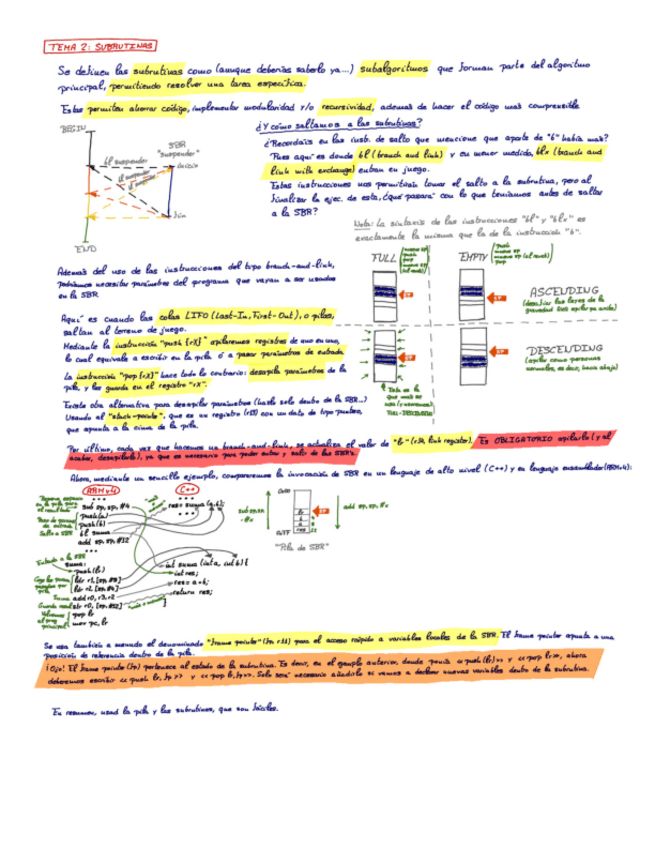 TEMA 2: SUBRUTINAS
Se definen las subrutinas como (aunque deberíais saberlo ya...) subalgoritmos que forman parte del algoritmo
principal, permitiendo resolver una tarea específica.
Estas permiten ahorrar código, implementar modularidad y/o recursividad, además de hacer el código más compresible
BEGIN
bl suspender
SBR
"suspender"
inicio
fin
END
¿Y cómo saltamos a las subrutinas?
¿Recordáis en las inst. de salto que mencioné que aparte de "b" había más?
Pues aquí es donde bl (branch and link) y en menor medida, blx (branch and
link with exchange) entran en juego.
Estas instrucciones nos permitirán tomar el salto a la subrutina, pero al
finalizar la ejec. de esta, ¿qué pasará con lo que teníamos antes de saltar
a la SBR?
Nota: La sintaxis de las instrucciones "bl" y "blx" es
exactamente la misma que la de la instrucción "b".
Además del uso de las instrucciones del tipo branch-and-link,
podríamos necesitar parámetros del programa que vayan a ser usados
en la SBR.
Aquí es cuando las colas LIFO (Last-In, First-Out), o pilas,
saltan al terreno de juego.
Mediante la instrucción "push {rX}" apilaremos registros de uno en uno,
lo cual equivale a escribir en la pila o a pasar parámetros de entrada.
La instrucción "pop {rX}" hace todo lo contrario: desapila parámetros de la
pila, y los guarda en el registro "rX".
Existe otra alternativa para desapilar parámetros (hazlo solo dentro de la SBR...)
Usando el "stack-pointer", que es un registro (r13) con un dato de tipo puntero,
que apunta a la cima de la pila.
FULL
EMPTY
SP
SP
ASCENDING
(desafiar las leyes de la
gravedad
SP
SP
DESCENDING
(apilar como personas
normales, es decir, hacia abajo)
Esta es la
que más se
usa
FULL-DESCENDING
Por último, cada vez que hacemos un branch-and-link, se actualiza el valor de "lr" (r14, link register). Es OBLIGATORIO apilarlo (y al
acabar, desapilarlo), ya que es necesario para poder entrar y salir de las SBR's.
Ahora, mediante un sencillo ejemplo, compararemos la invocación de SBR en un lenguaje de alto nivel (C++) y en lenguaje ensamblador (ARMv4):
ARMv4
C++
sub sp, sp, #4
push {a}
push {b}
bl suma
add sp, sp, #12
...
suma:
push {lr}
ldr r1, [sp, #8]
ldr r2, [sp, #4]
add r0, r1, r2
str r0, [sp, #12]
pop lr
mov pc, lr
res = suma (a,b);
int suma (int a, int b) {
int res;
res = a + b;
return res;
}
sub sp, sp, #x
SP
lr
b
a
res
add sp, sp, #x
"Pila de SBR"
Se usa también a menudo el denominado "frame pointer" (fp, r11) para el acceso rápido a variables locales de la SBR. El frame pointer apunta a una
posición de referencia dentro de la pila.
¡Ojo! El frame pointer (fp) pertenece al estado de la subrutina. Es decir, en el ejemplo anterior, donde ponía <<push {lr}>> y <<pop lr>>, ahora
deberemos escribir <<push lr, fp>> y <<pop lr, fp>>. Solo será necesario añadirlo si vamos a declarar nuevas variables dentro de la subrutina.
En resumen, usad la pila y las subrutinas, que son fáciles.